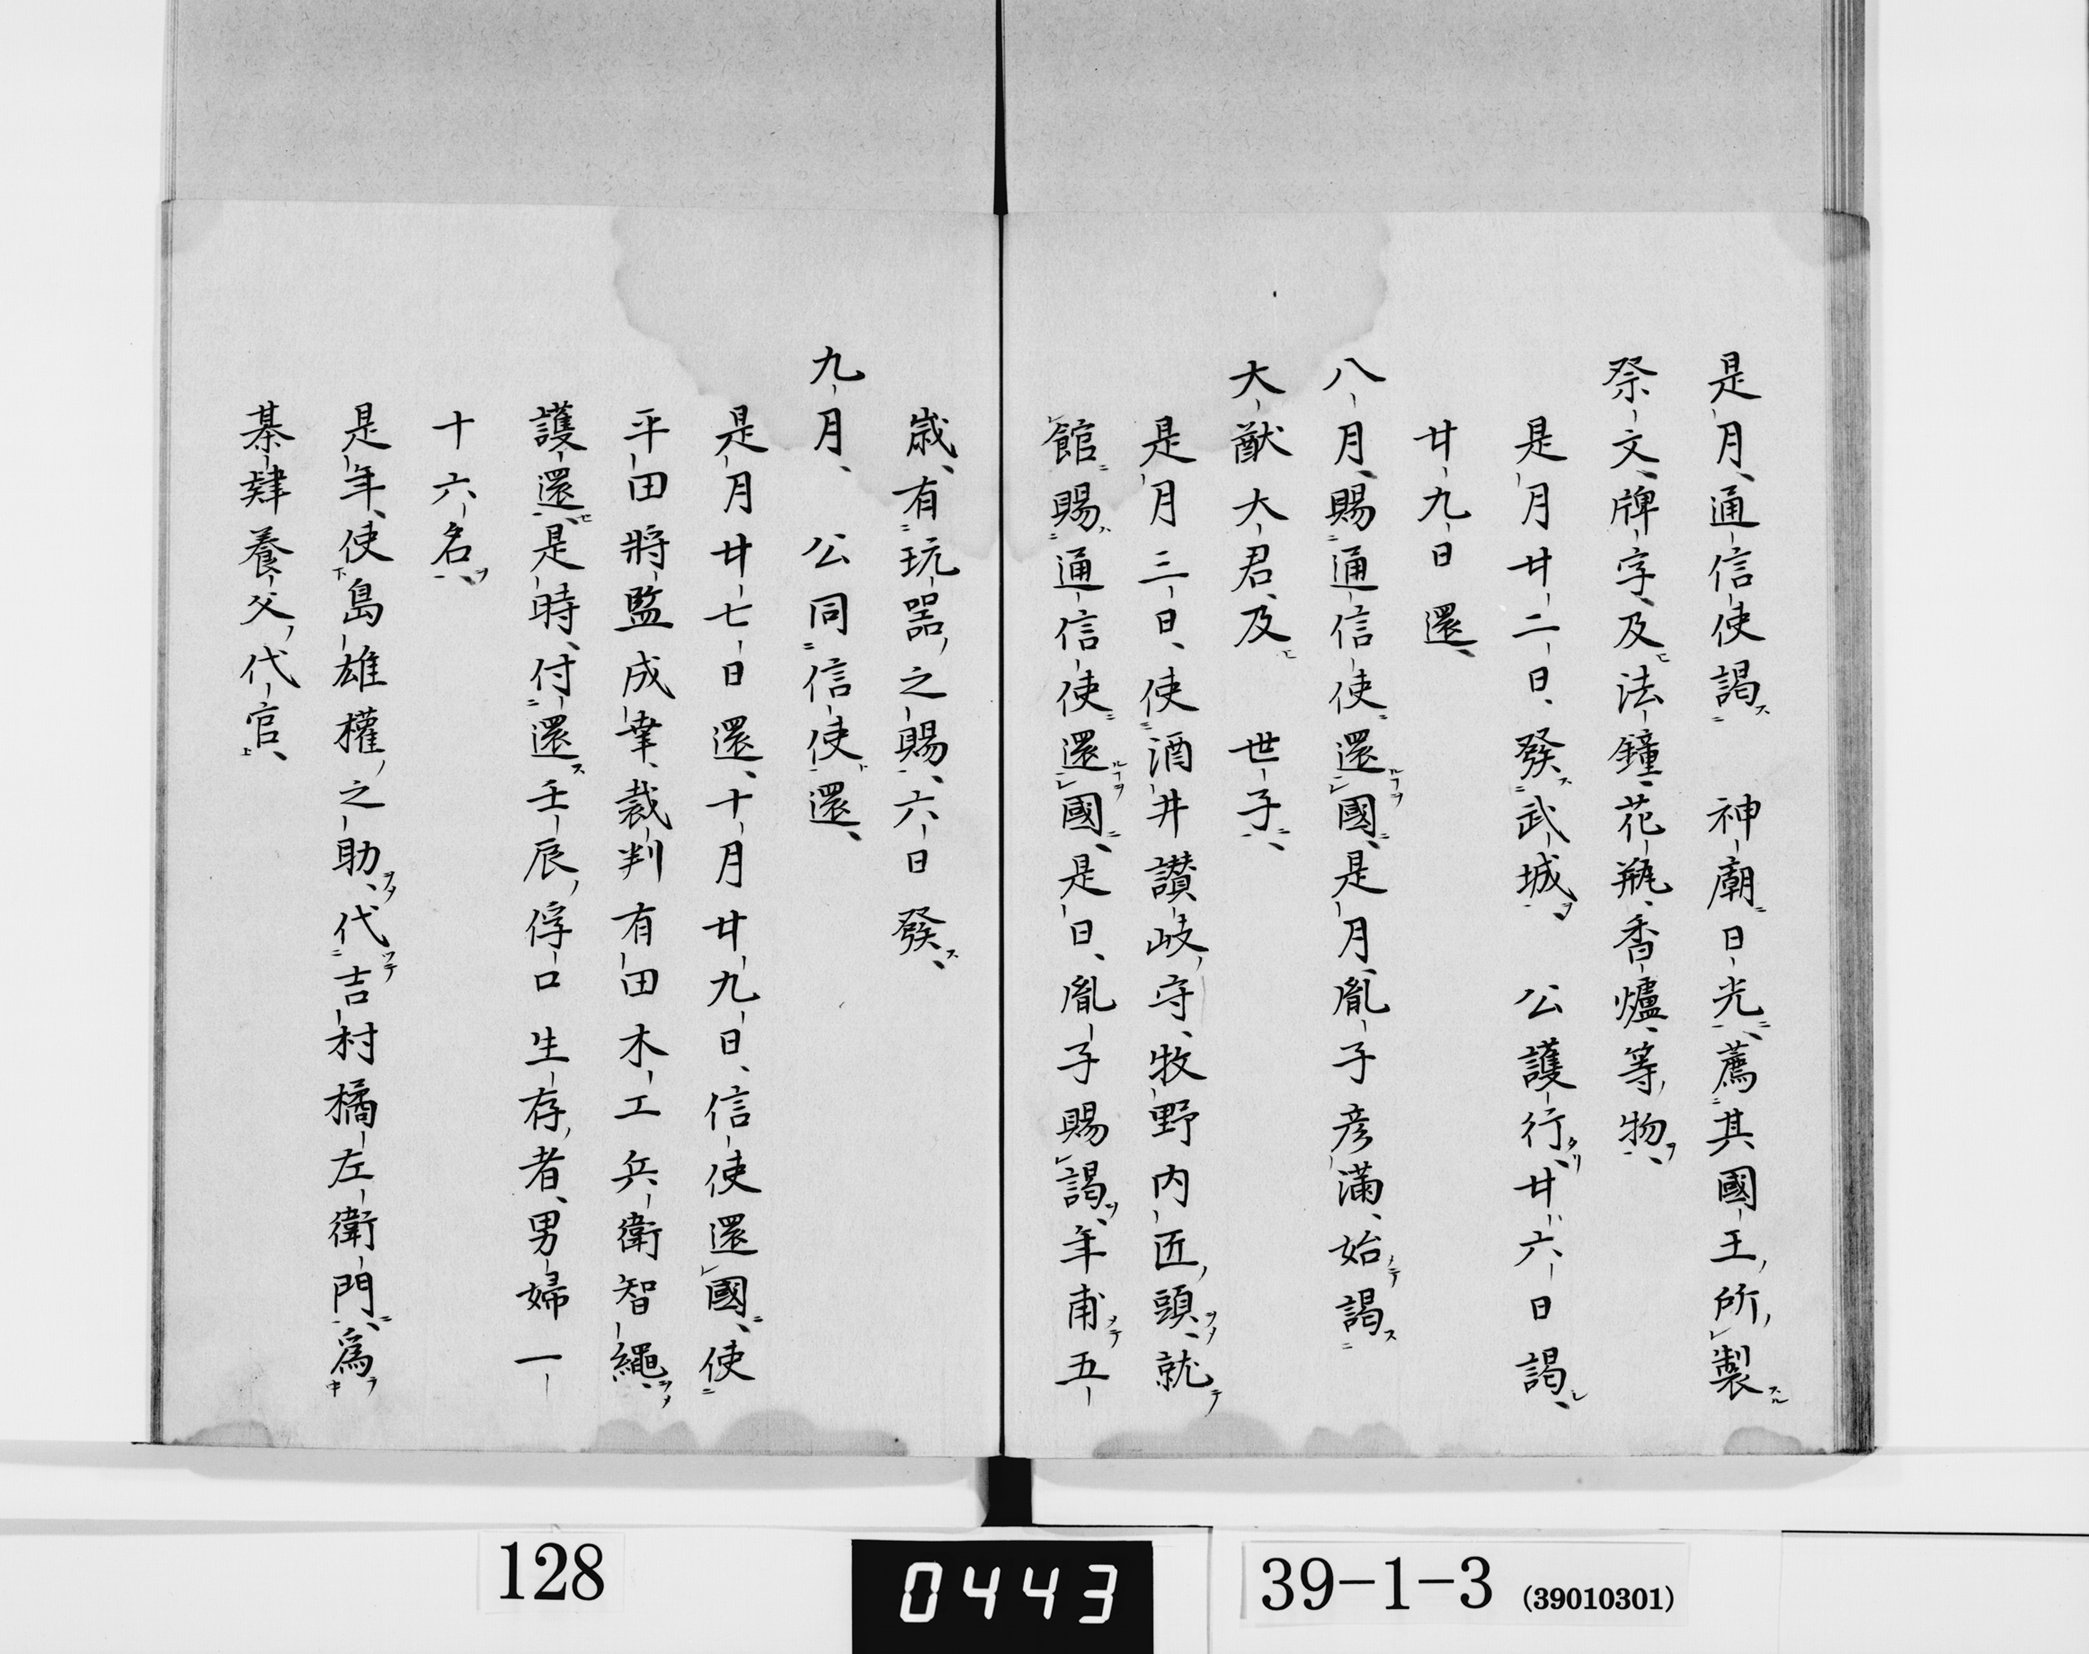 是月、通信使謁 神廟日光、薦其國王所製
祭文、牌字、及法鐘、花瓶、香爐、等物、
是月廿二日、發武城、 公護行、廿六日謁、
廿九日還、
八月、賜通信使還國、是月、胤子彦滿、始謁
大猷大君、及 世子、
是月三日、使酒井讃岐守、牧野内匠頭、就
館賜通信使還國、是日、胤子賜謁、年甫五
歳、有玩器之賜、六日發、
九月、 公同信使還、
是月廿七日還、十月廿九日、信使還國、使
平田將監成幸、裁判有田木工兵衛智繩、
護還、是時、付還壬辰俘口生存者、男婦一
十六名、
是年、使島雄權之助、代吉村橘左衛門、爲
基肄養父代官、
128
0443
39-1-3 (39010301)